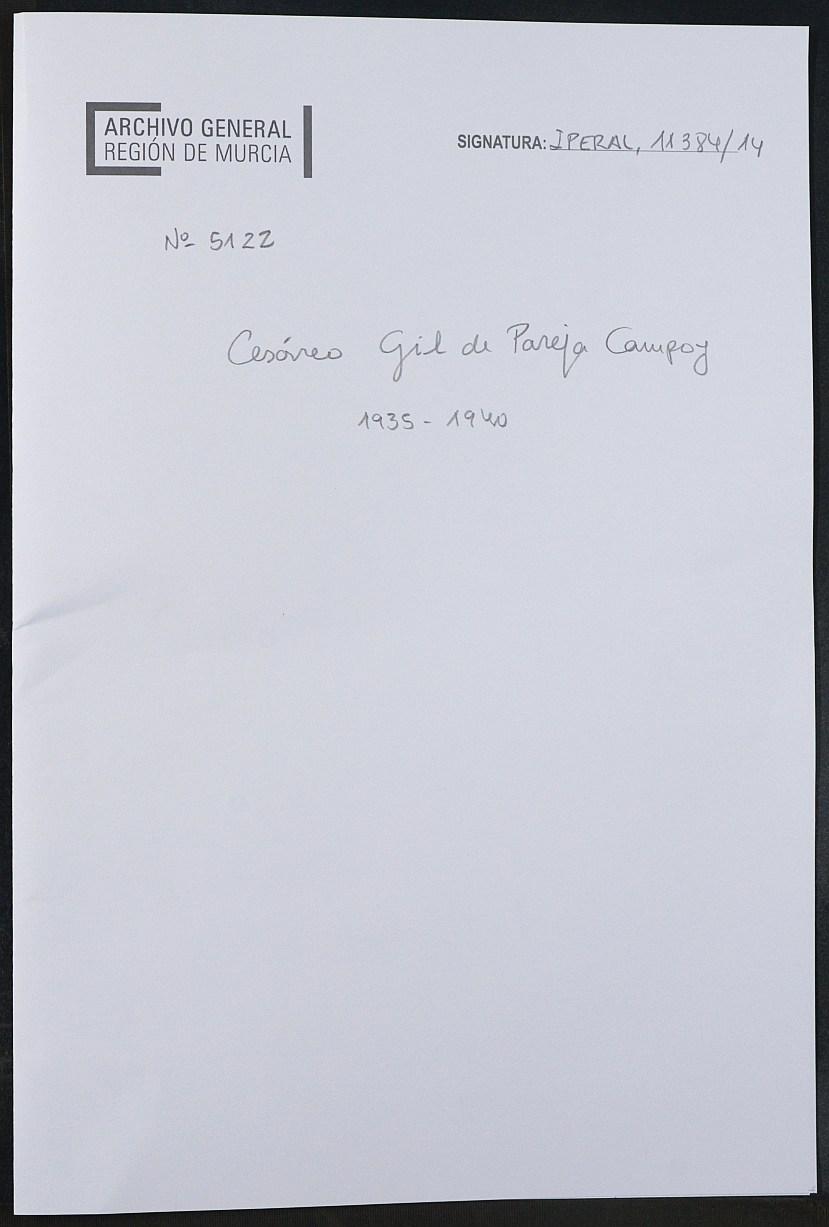 ARCHIVO GENERAL
REGIÓN DE MURCIA
SIGNATURA: IPERAL, 11384/14
Nº 5122
Cesáreo Gil de Pareja Campoy
1935 - 1940